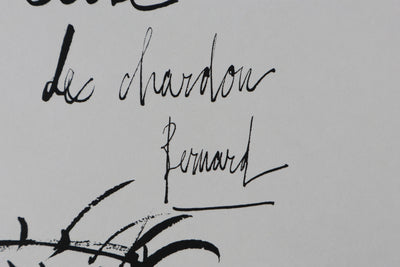 de chardon
Bernard